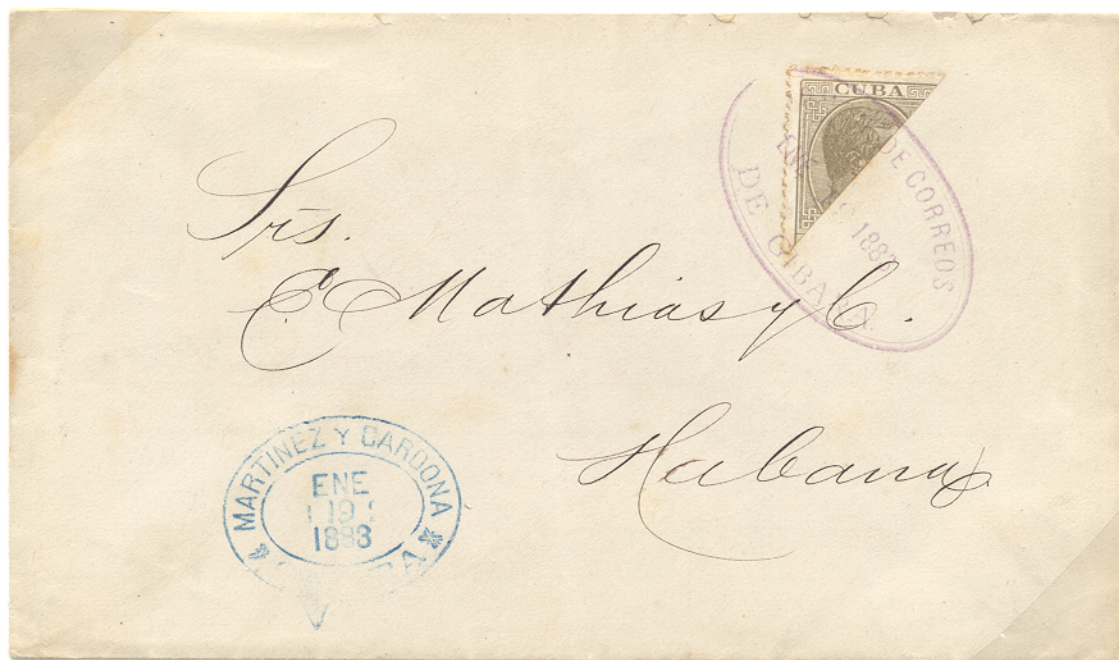 CUBA
DE CORREOS
19 1883
DE GIBARA.
Srs.
C. Mathias y C.
Habana
MARTINEZ Y CARDONA
ENE
19
1883